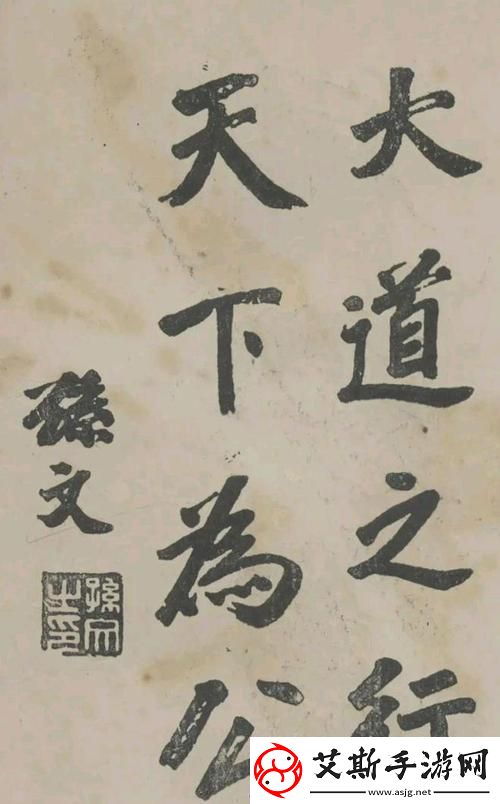 大道之行
天下為公
孫文
孫文之印
艾斯手游网
www.asjg.net